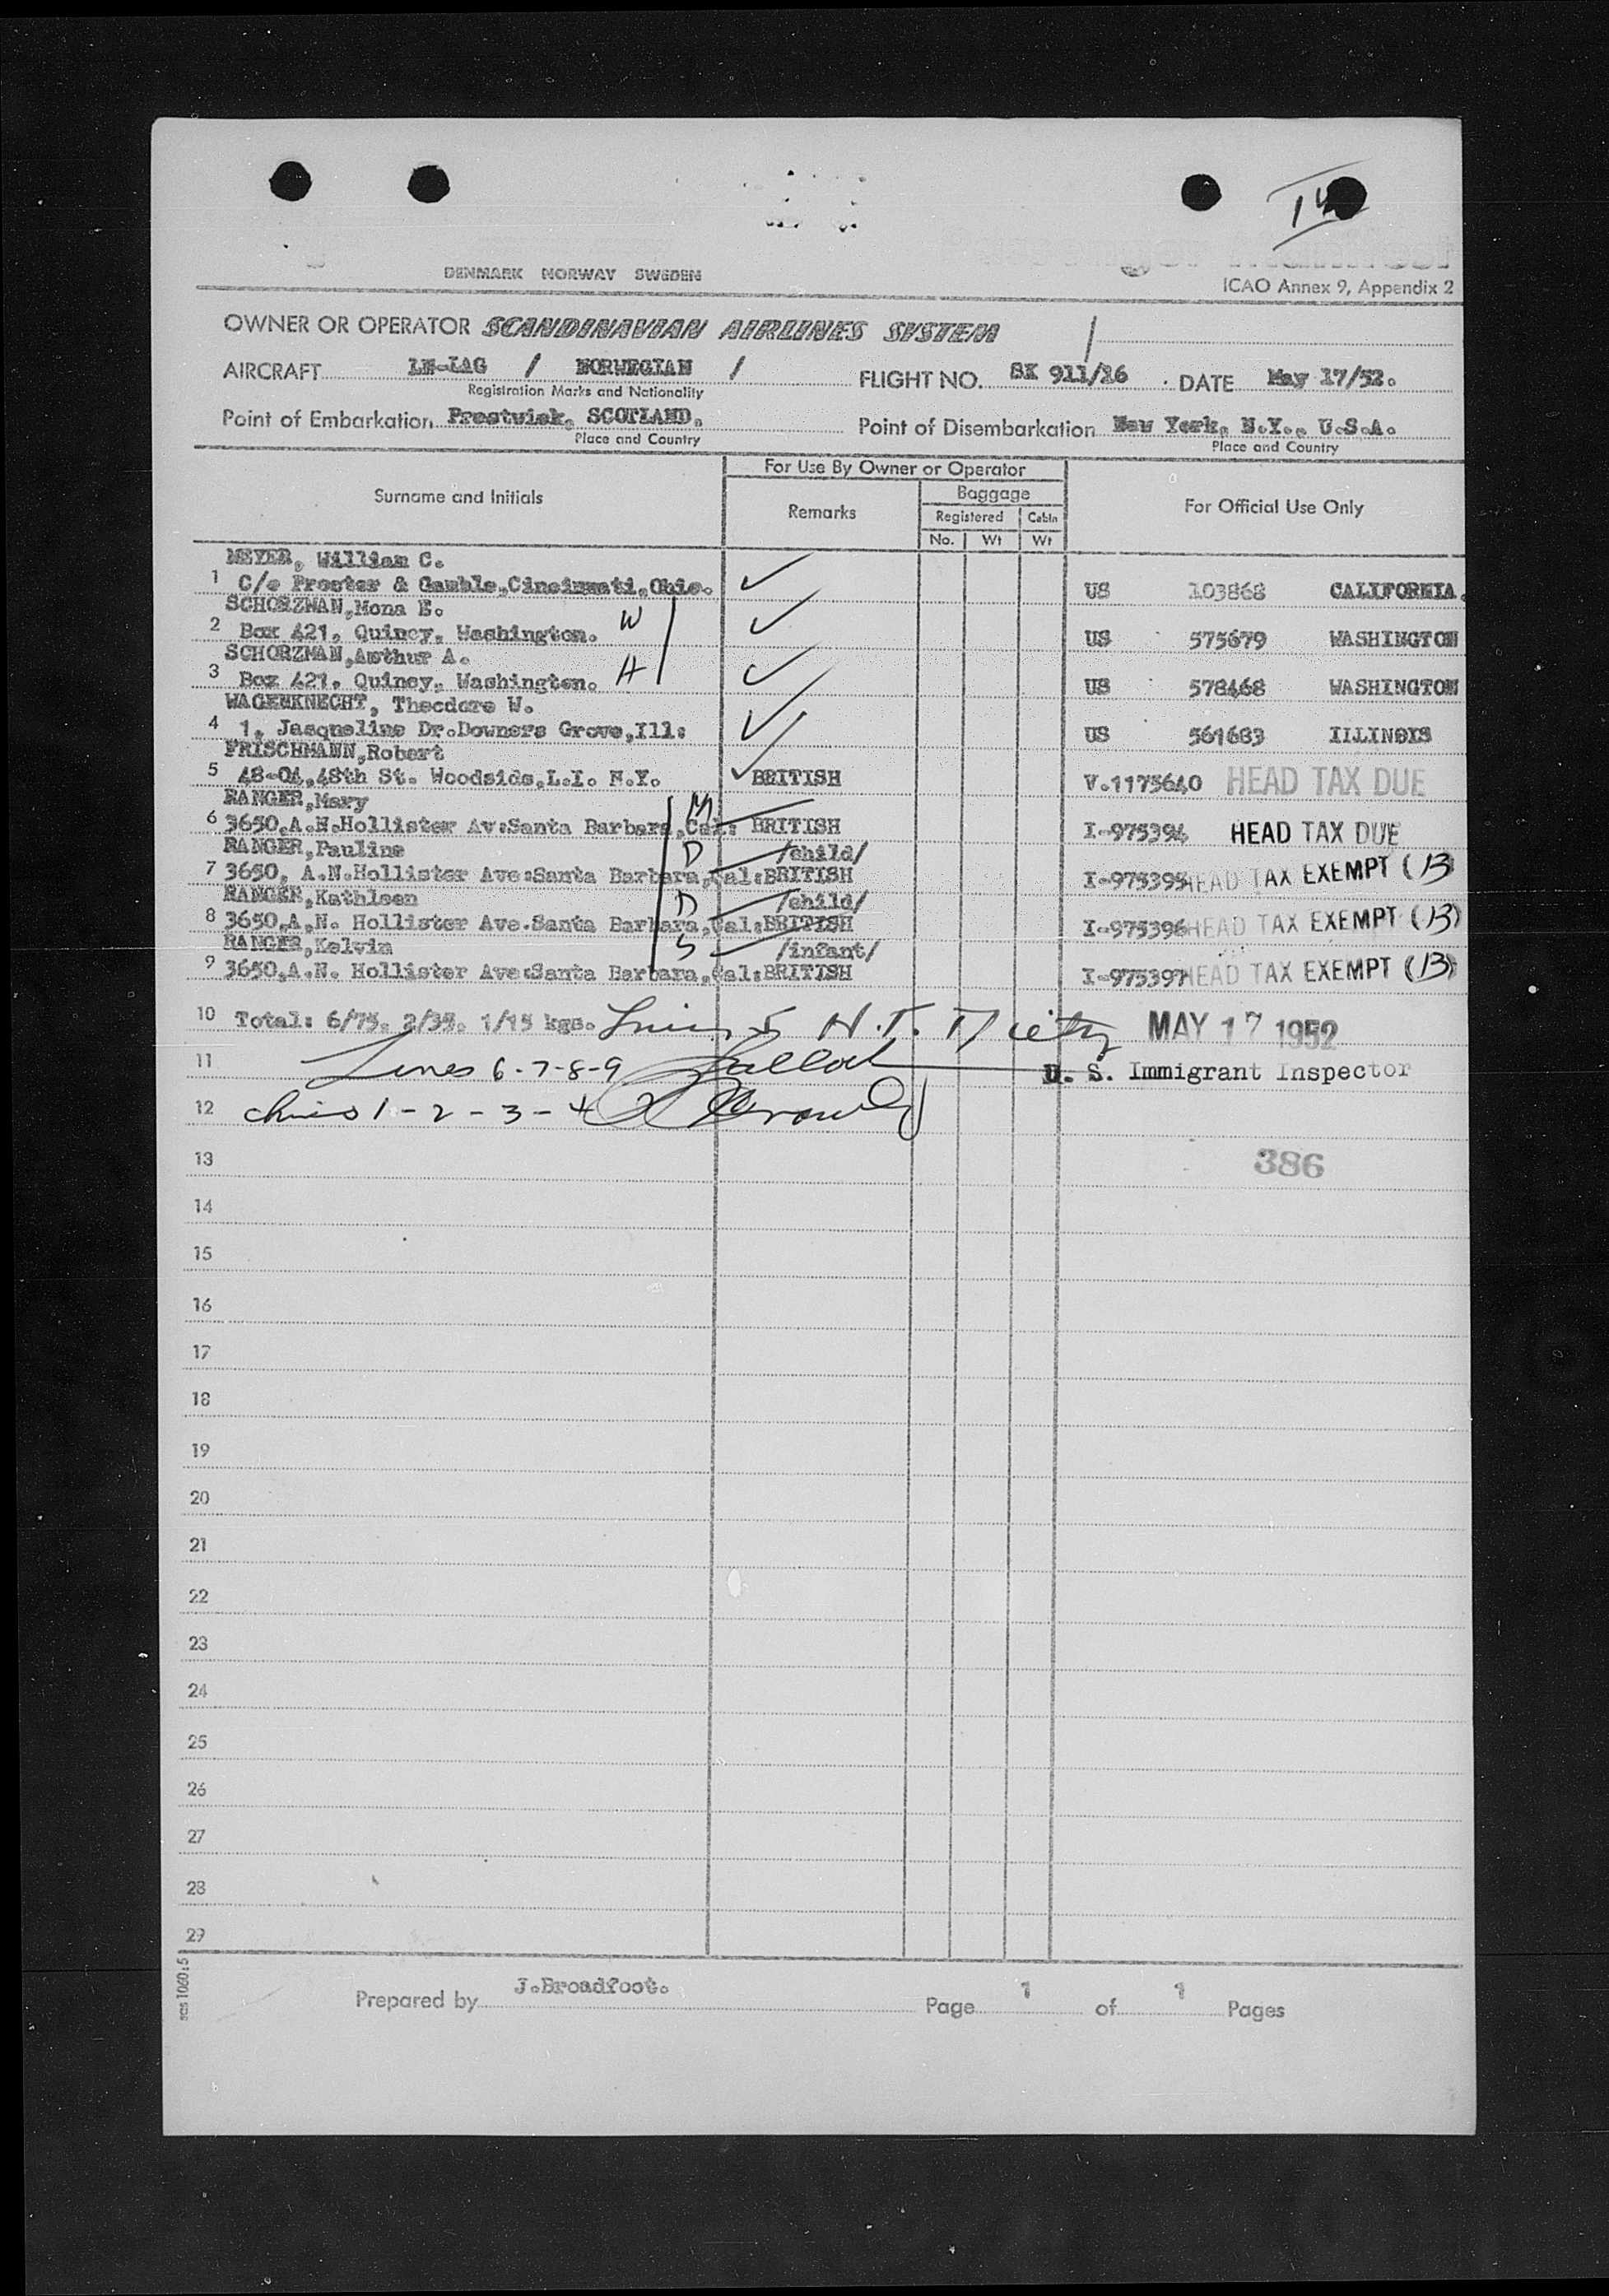 DENMARK NORWAY SWEDEN
ICAO Annex 9, Appendix 2
OWNER OR OPERATOR SCANDINAVIAN AIRLINES SYSTEM /
AIRCRAFT LN-LAG / NORWEGIAN / FLIGHT NO. SK 911/16 . DATE May 17/52.
Registration Marks and Nationality
Point of Embarkation Prestwick, SCOTLAND. Point of Disembarkation New York, N.Y., U.S.A.
Place and Country Place and Country
For Use By Owner or Operator
Surname and Initials Remarks Baggage For Official Use Only
Registered Cabin
No. Wt Wt
MEYER, William C.
1 C/o Procter & Gamble,Cincinnati,Ohio. ✓ US 103868 CALIFORNIA.
SCHORZMAN,Mona E.
2 Box 421, Quincy, Washington. W ✓ US 575679 WASHINGTON
SCHORZMAN,Arthur A.
3 Box 421, Quincy, Washington. H ✓ US 578468 WASHINGTON
WAGENKNECHT, Theodore W.
4 1, Jacqueline Dr.Downers Grove,Ill: ✓ US 561683 ILLINOIS
FRISCHMANN,Robert
5 48-04,48th St. Woodside,L.I. N.Y. ✓ BRITISH V.1175640 HEAD TAX DUE
RANGER,Mary
6 3650,A.N.Hollister Av:Santa Barbara,Cal: M BRITISH I-975394 HEAD TAX DUE
RANGER,Pauline D /child/
7 3650, A.N.Hollister Ave:Santa Barbara,Cal:BRITISH I-975395 HEAD TAX EXEMPT (13)
RANGER,Kathleen D /child/
8 3650,A.N. Hollister Ave.Santa Barbara,Cal:BRITISH I-975396 HEAD TAX EXEMPT (13)
RANGER,Kelvin S /infant/
9 3650,A.N. Hollister Ave:Santa Barbara,Cal:BRITISH I-975397 HEAD TAX EXEMPT (13)
10 Total: 6/75, 2/35, 1/15 kgs. 5 H.T. MAY 17 1952
11 Lines 6-7-8-9 U. S. Immigrant Inspector
12 1-2-3-4
13 386
14
15
16
17
18
19
20
21
22
23
24
25
26
27
28
29
sas 1060:5
Prepared by J.Broadfoot. Page 1 of 1 Pages